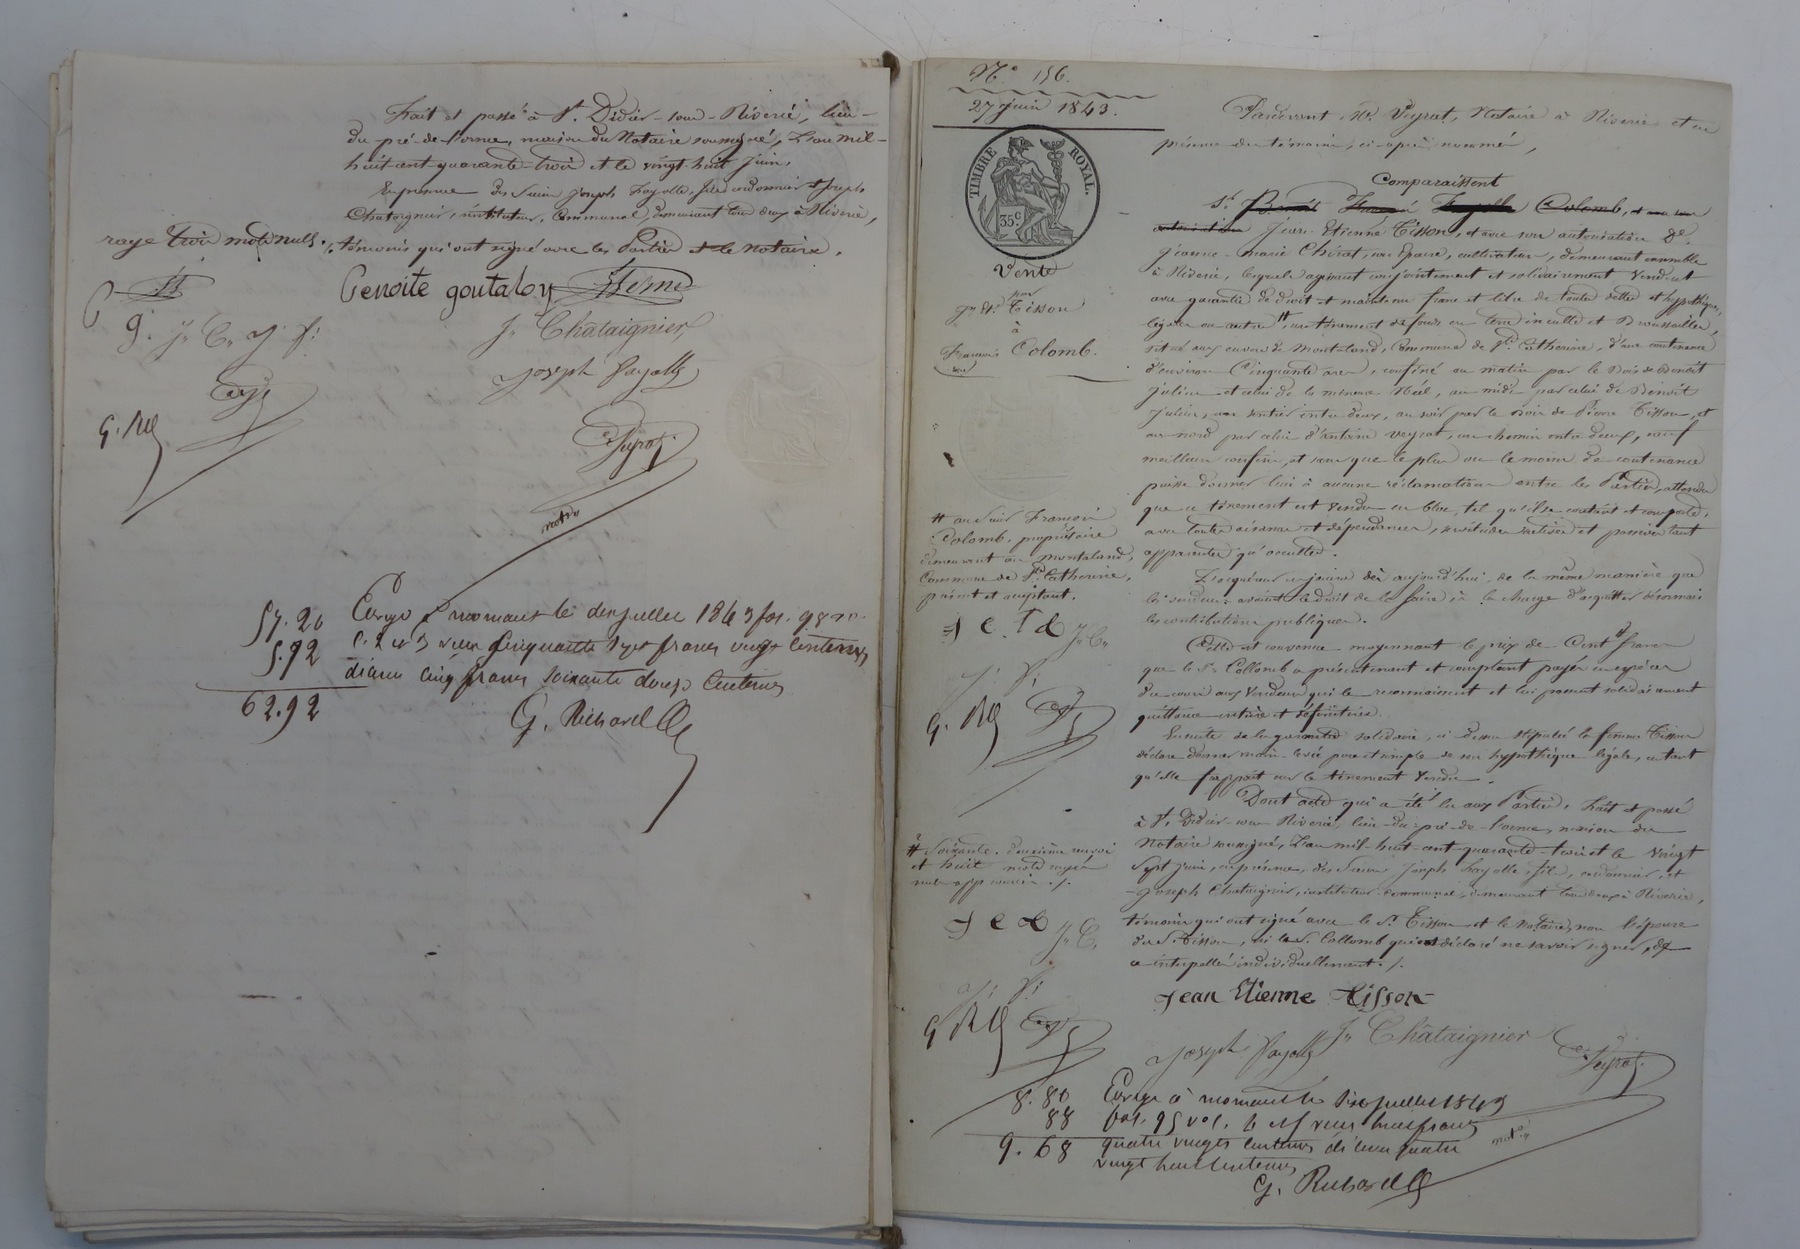 Fait et passé à St. Didier-sous-Riverie, lieu-
du pré-de-l'orme, maison du Notaire soussigné, L'an mil-
huit-cent-quarante-trois et le vingt-huit Juin,
En présence des Sieurs Joseph Fayolle, fils cordonnier et Joseph
Chataignier, instituteur, Communal, demeurant tous deux à Riverie,
témoins qui ont signé avec les Parties et le Notaire.
raye trois mots nuls./.
Benoite goutalon
J. C. J. f.
Jh Chataignier
Joseph fayolle
G. Rd
Veyrat
notre
57.20
5.72
62.92
Enrgé à mornant le deux juillet 1843 fol. 98
reçu cinquante sept francs vingt centimes
décime cinq francs soixante douze centimes
G. Richard
No. 156.
27 Juin 1843.
TIMBRE ROYAL.
35c.
Vente
par
Jn Et. Tisson
à
François Colomb.
Pardevant Me. Veyrat, Notaire à Riverie et en
présence des témoins, ci-après nommés,
Comparaissent
Sr. Benoit Colomb, et
Jean-Etienne Tisson, et avec son autorisation De.
Jeanne-Marie Chirat, son Epouse, cultivateurs, demeurant ensemble
à Riverie, lesquels agissant conjointement et solidairement vendent
avec garantie de droit et maintenue franc et libre de toutes dettes et hypothèques,
légales ou autres #, un tènement de fonds en terre inculte et Broussailles,
situé aux environs de Montaland, Commune de Ste. Catherine, d'une contenance
d'environ Cinquante ares, confiné au matin par le Bois de Benoît
Julien et celui de la mineure Néel, au midi par celui de Benoît
Julien, un sentier entre deux, au soir par le Bois de Pierre Tisson, et
au nord par celui d'antoine Veyrat, un chemin entre deux, sauf
meilleurs confins, et sans que le plus ou le moins de contenance
puisse donner lieu à aucune réclamation entre les Parties, attendu
que ce tènement est vendu en bloc, tel qu'il se contient et comporte,
avec toutes aisances et dépendances, servitudes actives et passives tant
apparentes qu'occultes.
# au Sieur François
Colomb, propriétaire
demeurant au Montaland,
Commune de Ste. Catherine,
présent et acceptant.
L'acquéreur en jouira dès aujourd'hui, de la même manière que
les vendeurs avaient le droit de le faire, à la charge d'acquitter désormais
les contributions publiques.
Cette est convenue moyennant le prix de Cent francs
que le Sr. Collomb a présentement et comptant payés en espèces
du cours aux Vendeurs qui le reconnaissent et lui passent solidairement
quittance entière et définitive.
Ensuite de la garantie solidaire, ci-dessus stipulée la femme Tisson
déclare donner main-levée pure et simple de son hypothèque légale, en tant
qu'elle frappait sur le tènement Vendu.
J e t d Jh C.
J. f.
G. Rd
Dont acte qui a été lu aux Parties, Fait et passé
à St. Didier-sous-Riverie, lieu-du-pré-de-l'orme, maison du
Notaire soussigné, L'an mil-huit-cent-quarante-trois et le vingt
Sept Juin, en présence, des Sieurs Joseph Fayolle, fils, cordonnier, et
Joseph Chataignier, instituteur communal, demeurant tous deux à Riverie,
témoins qui ont signé avec le Sr. Tisson et le Notaire, non l'épouse
du Sr. Tisson, ni le Sr. Collomb qui ont déclaré ne savoir signer, de
ce interpellés individuellement./.
# Soixante. deuxième renvoi
et huit mots rayés
nuls approuvés./.
J e t Jh C.
J. f.
G. Rd
Jean Etienne tisson
Joseph fayolle
Jh Chataignier
Veyrat
8.80
88
9.68
Enrgé à mornant le deux juillet 1843
fol. 95 vo. reçu huit francs
quatre vingts centimes décime quatre
vingt huit centimes
G. Richard
notre